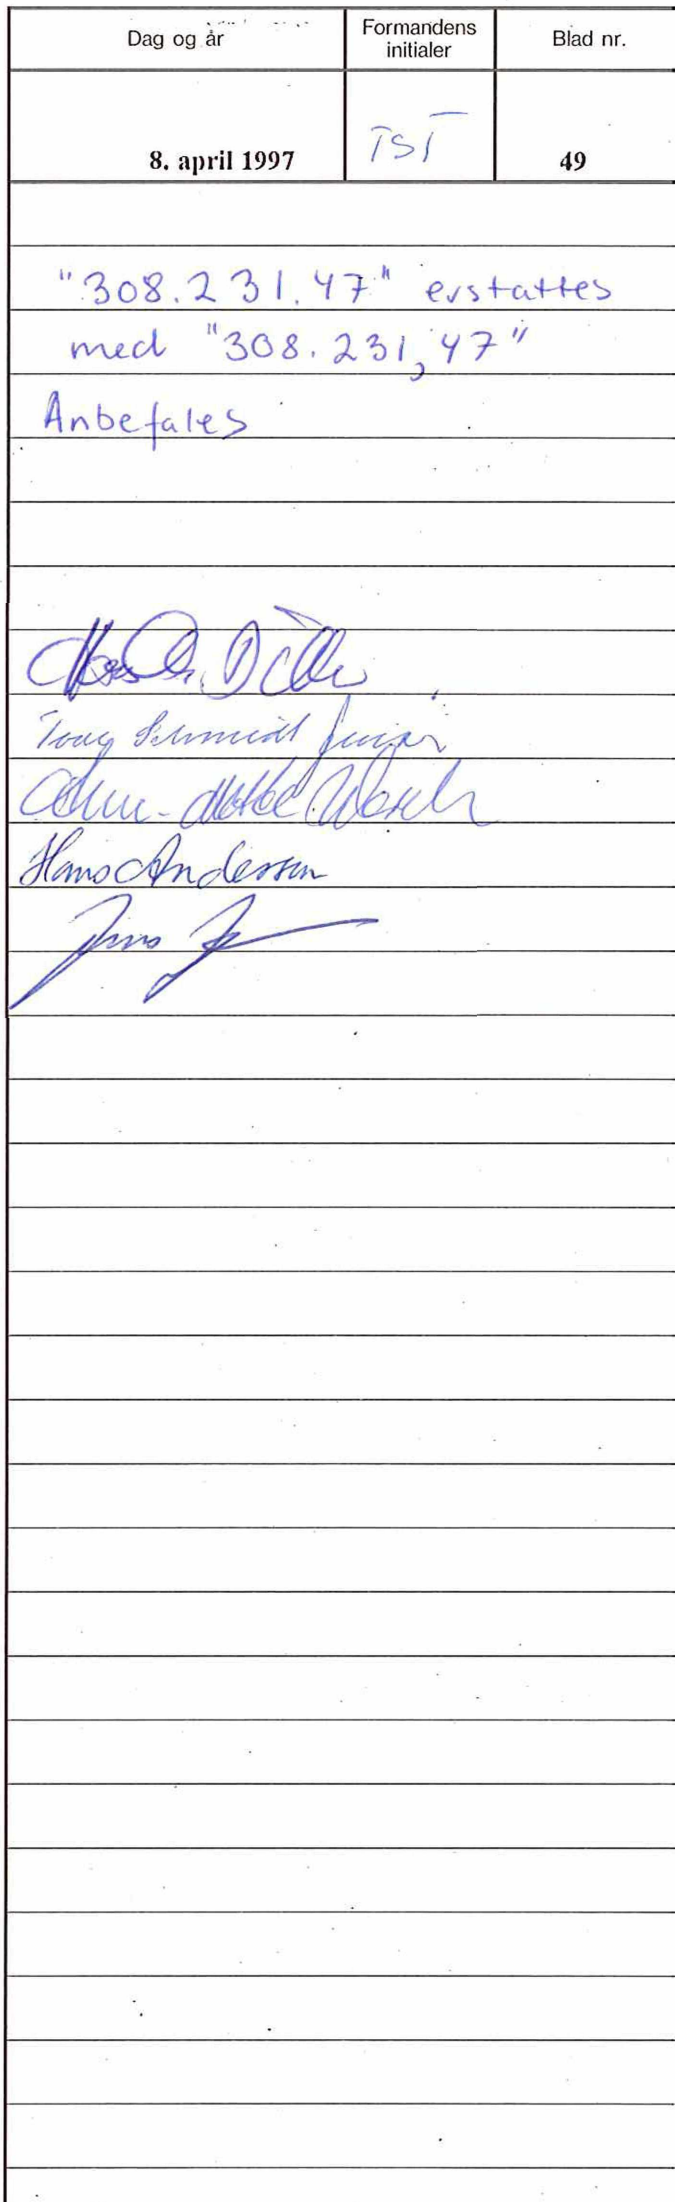 Dag og år
Formandens
initialer
Blad nr.
8. april 1997
TST
49
"308.231.47" erstattes
med "308.231,47"
Anbefales
Schmidt
Hans Andersen